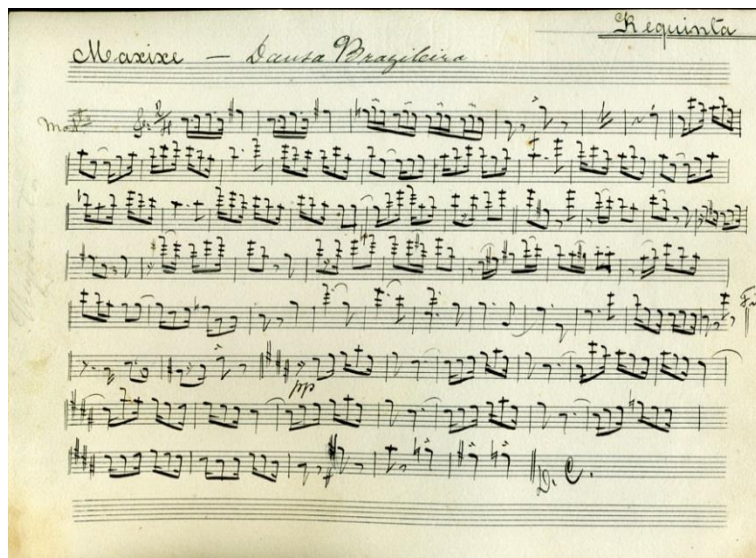 Requinta
Maxixe — Dansa Brazileira
Mod
pp
D. C.